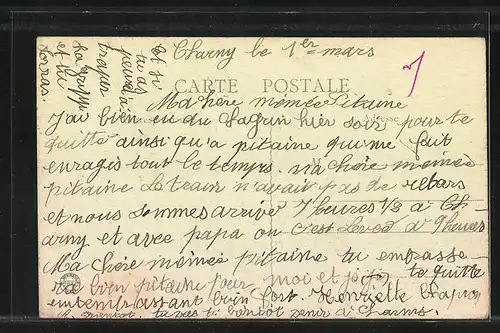 Charny le 1er mars
CARTE POSTALE
Ma chère mémée Pitaine
J'ai bien eu du chagrin hier soir pour te
quitte ainsi qu'a pitaine qui me fait
enragis tout le temps. ma chère mémée
pitaine Le teain n'avait pas de retars
et nous sommes arrivé 7 heures 1/2 a Ch-
arny et avec papa on c'est Levée a 9 heures
Ma chère mémée pitaine tu empasse-
ra bien pitaine pour moi et je te quitte
en temb assant bien fort. Henriette
bientot venir a Charni.
et si
tu as